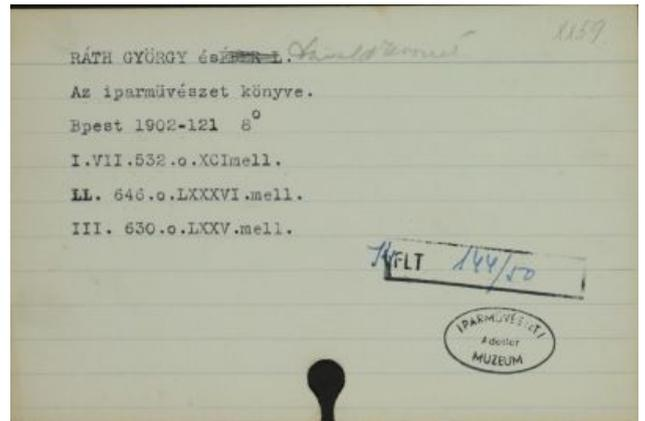 1159
RÁTH GYÖRGY és EBER L.
Az iparmüvészet könyve.
Bpest 1902-121 8°
I.VII.532.o.XCImell.
LL. 646.o.LXXXVI.mell.
III. 630.o.LXXV.mell.
FLT 144/50
IPARMŰVÉSZETI
Adattár
MUZEUM